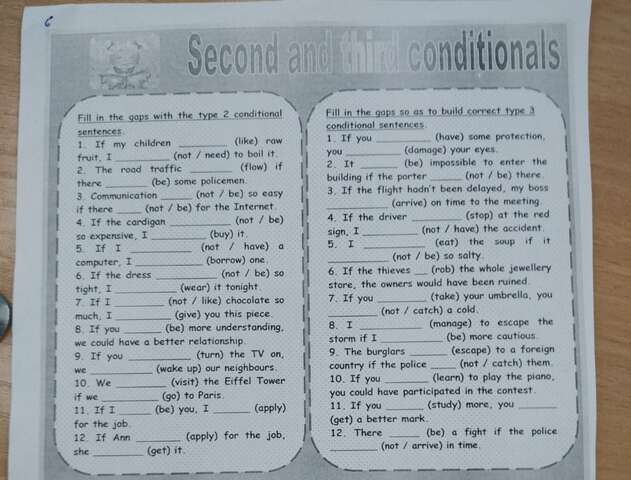 6
Second and third conditionals
Fill in the gaps with the type 2 conditional
sentences.
1. If my children ________ (like) raw
fruit, I ________ (not / need) to boil it.
2. The road traffic ________ (flow) if
there ________ (be) some policemen.
3. Communication ________ (not / be) so easy
if there ________ (not / be) for the Internet.
4. If the cardigan ________ (not / be)
so expensive, I ________ (buy) it.
5. If I ________ (not / have) a
computer, I ________ (borrow) one.
6. If the dress ________ (not / be) so
tight, I ________ (wear) it tonight.
7. If I ________ (not / like) chocolate so
much, I ________ (give) you this piece.
8. If you ________ (be) more understanding,
we could have a better relationship.
9. If you ________ (turn) the TV on,
we ________ (wake up) our neighbours.
10. We ________ (visit) the Eiffel Tower
if we ________ (go) to Paris.
11. If I ________ (be) you, I ________ (apply)
for the job.
12. If Ann ________ (apply) for the job,
she ________ (get) it.
Fill in the gaps so as to build correct type 3
conditional sentences.
1. If you ________ (have) some protection,
you ________ (damage) your eyes.
2. It ________ (be) impossible to enter the
building if the porter ________ (not / be) there.
3. If the flight hadn't been delayed, my boss
________ (arrive) on time to the meeting.
4. If the driver ________ (stop) at the red
sign, I ________ (not / have) the accident.
5. I ________ (eat) the soup if it
________ (not / be) so salty.
6. If the thieves __ (rob) the whole jewellery
store, the owners would have been ruined.
7. If you ________ (take) your umbrella, you
________ (not / catch) a cold.
8. I ________ (manage) to escape the
storm if I ________ (be) more cautious.
9. The burglars ________ (escape) to a foreign
country if the police ________ (not / catch) them.
10. If you ________ (learn) to play the piano,
you could have participated in the contest.
11. If you ________ (study) more, you ________
(get) a better mark.
12. There ________ (be) a fight if the police
________ (not / arrive) in time.